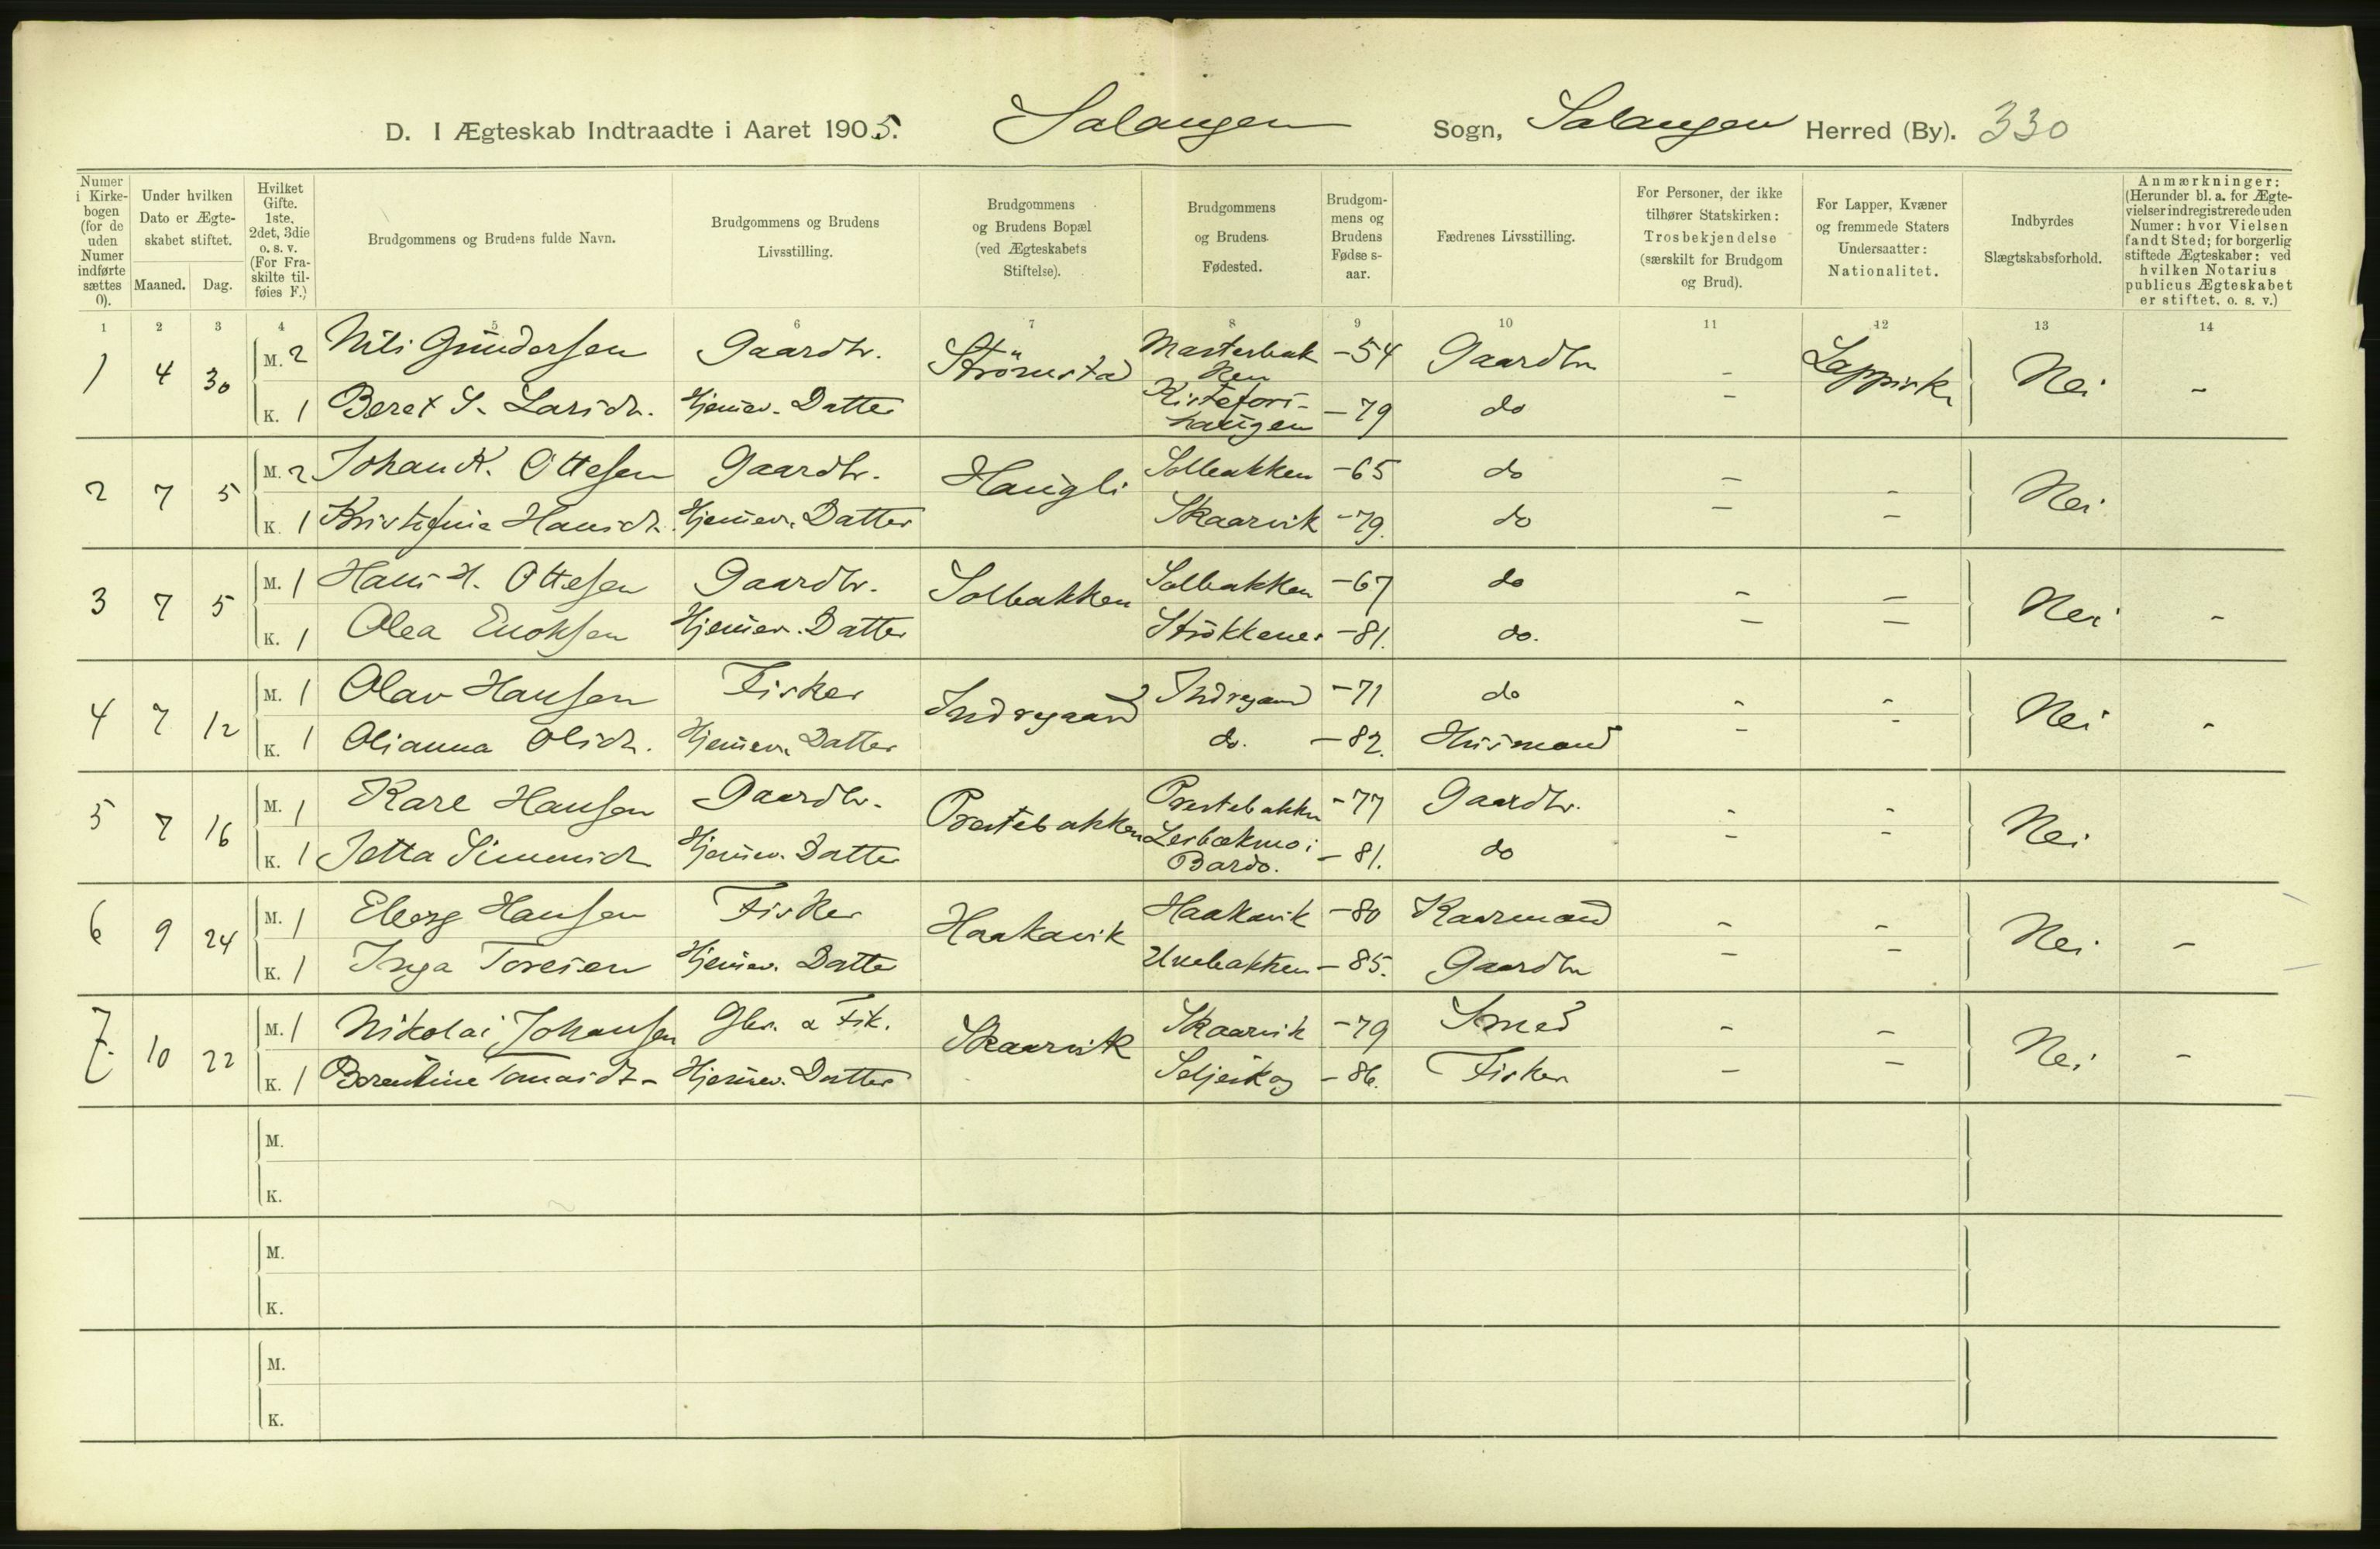 D. I Ægteskab Indtraadte i Aaret 1905. Salangen Sogn, Salangen Herred (By). 330
Numer i Kirke-bogen (for de uden Numer indførte sættes 0).
Under hvilken Dato er Ægte-skabet stiftet.
Maaned. Dag.
Hvilket Gifte. 1ste, 2det, 3die o. s. v. (For Fra-skilte til-føies F.)
Brudgommens og Brudens fulde Navn.
Brudgommens og Brudens Livsstilling.
Brudgommens og Brudens Bopæl (ved Ægteskabets Stiftelse).
Brudgommens og Brudens Fødested.
Brudgom-mens og Brudens Fødses-aar.
Fædrenes Livsstilling.
For Personer, der ikke tilhører Statskirken: Trosbekjendelse (særskilt for Brudgom og Brud).
For Lapper, Kvæner og fremmede Staters Undersaatter: Nationalitet.
Indbyrdes Slægtskabsforhold.
Anmærkninger: (Herunder bl. a. for Ægte-vielser indregistrerede uden Numer: hvor Vielsen fandt Sted; for borgerlig stiftede Ægteskaber: ved hvilken Notarius publicus Ægteskabet er stiftet, o. s. v.)
1 2 3 4 5 6 7 8 9 10 11 12 13 14
1 4 30 M. 2 Nils Gundersen Gaardbr. Strömstad Masterbakken -54 Gaardbr - Lappisk Nei -
K. 1 Beret S. Larsdr. Hjemev. Datter Kristofershaugen -79 do -
2 7 5 M. 2 Johan K. Ottesen Gaardbr. Haugli Solbakken -65 do - - Nei
K. 1 Kristofine Hansdr. Hjemev. Datter Skaarvik -79. do - -
3 7 5 M. 1 Hans H. Ottesen Gaardbr. Solbakken Solbakken -67 do - - Nei -
K. 1 Olea Enoksen Hjemev. Datter Stokkenes -81. do. - -
4 7 12 M. 1 Olav Hansen Fisker Indregaard Indregaard -71 do - - Nei -
K. 1 Olianna Olsdr. Hjemev. Datter do. -82. Husmand - -
5 7 16 M. 1 Karl Hansen Gaardbr. Prestebakken Prestebakken -77 Gaardbr. - - Nei
K. 1 Jetta Simensdr Hjemev. Datter i Bardo. -81. do - -
6 9 24 M. 1 Eberg Hansen Fisker Haakavik Haakavik -80 Kaarmand - - Nei -
K. 1 Inga Toresen Hjemev. Datter -85. Gaardbr - -
7. 10 22 M. 1 Nikolai Johansen Gbr. & Fisk. Skaarvik Skaarvik -79 Smed - - Nei -
K. 1 Berentine Tomasdr. Hjemev. Datter Seljeskog -86. Fisker - -
M.
K.
M.
K.
M.
K.